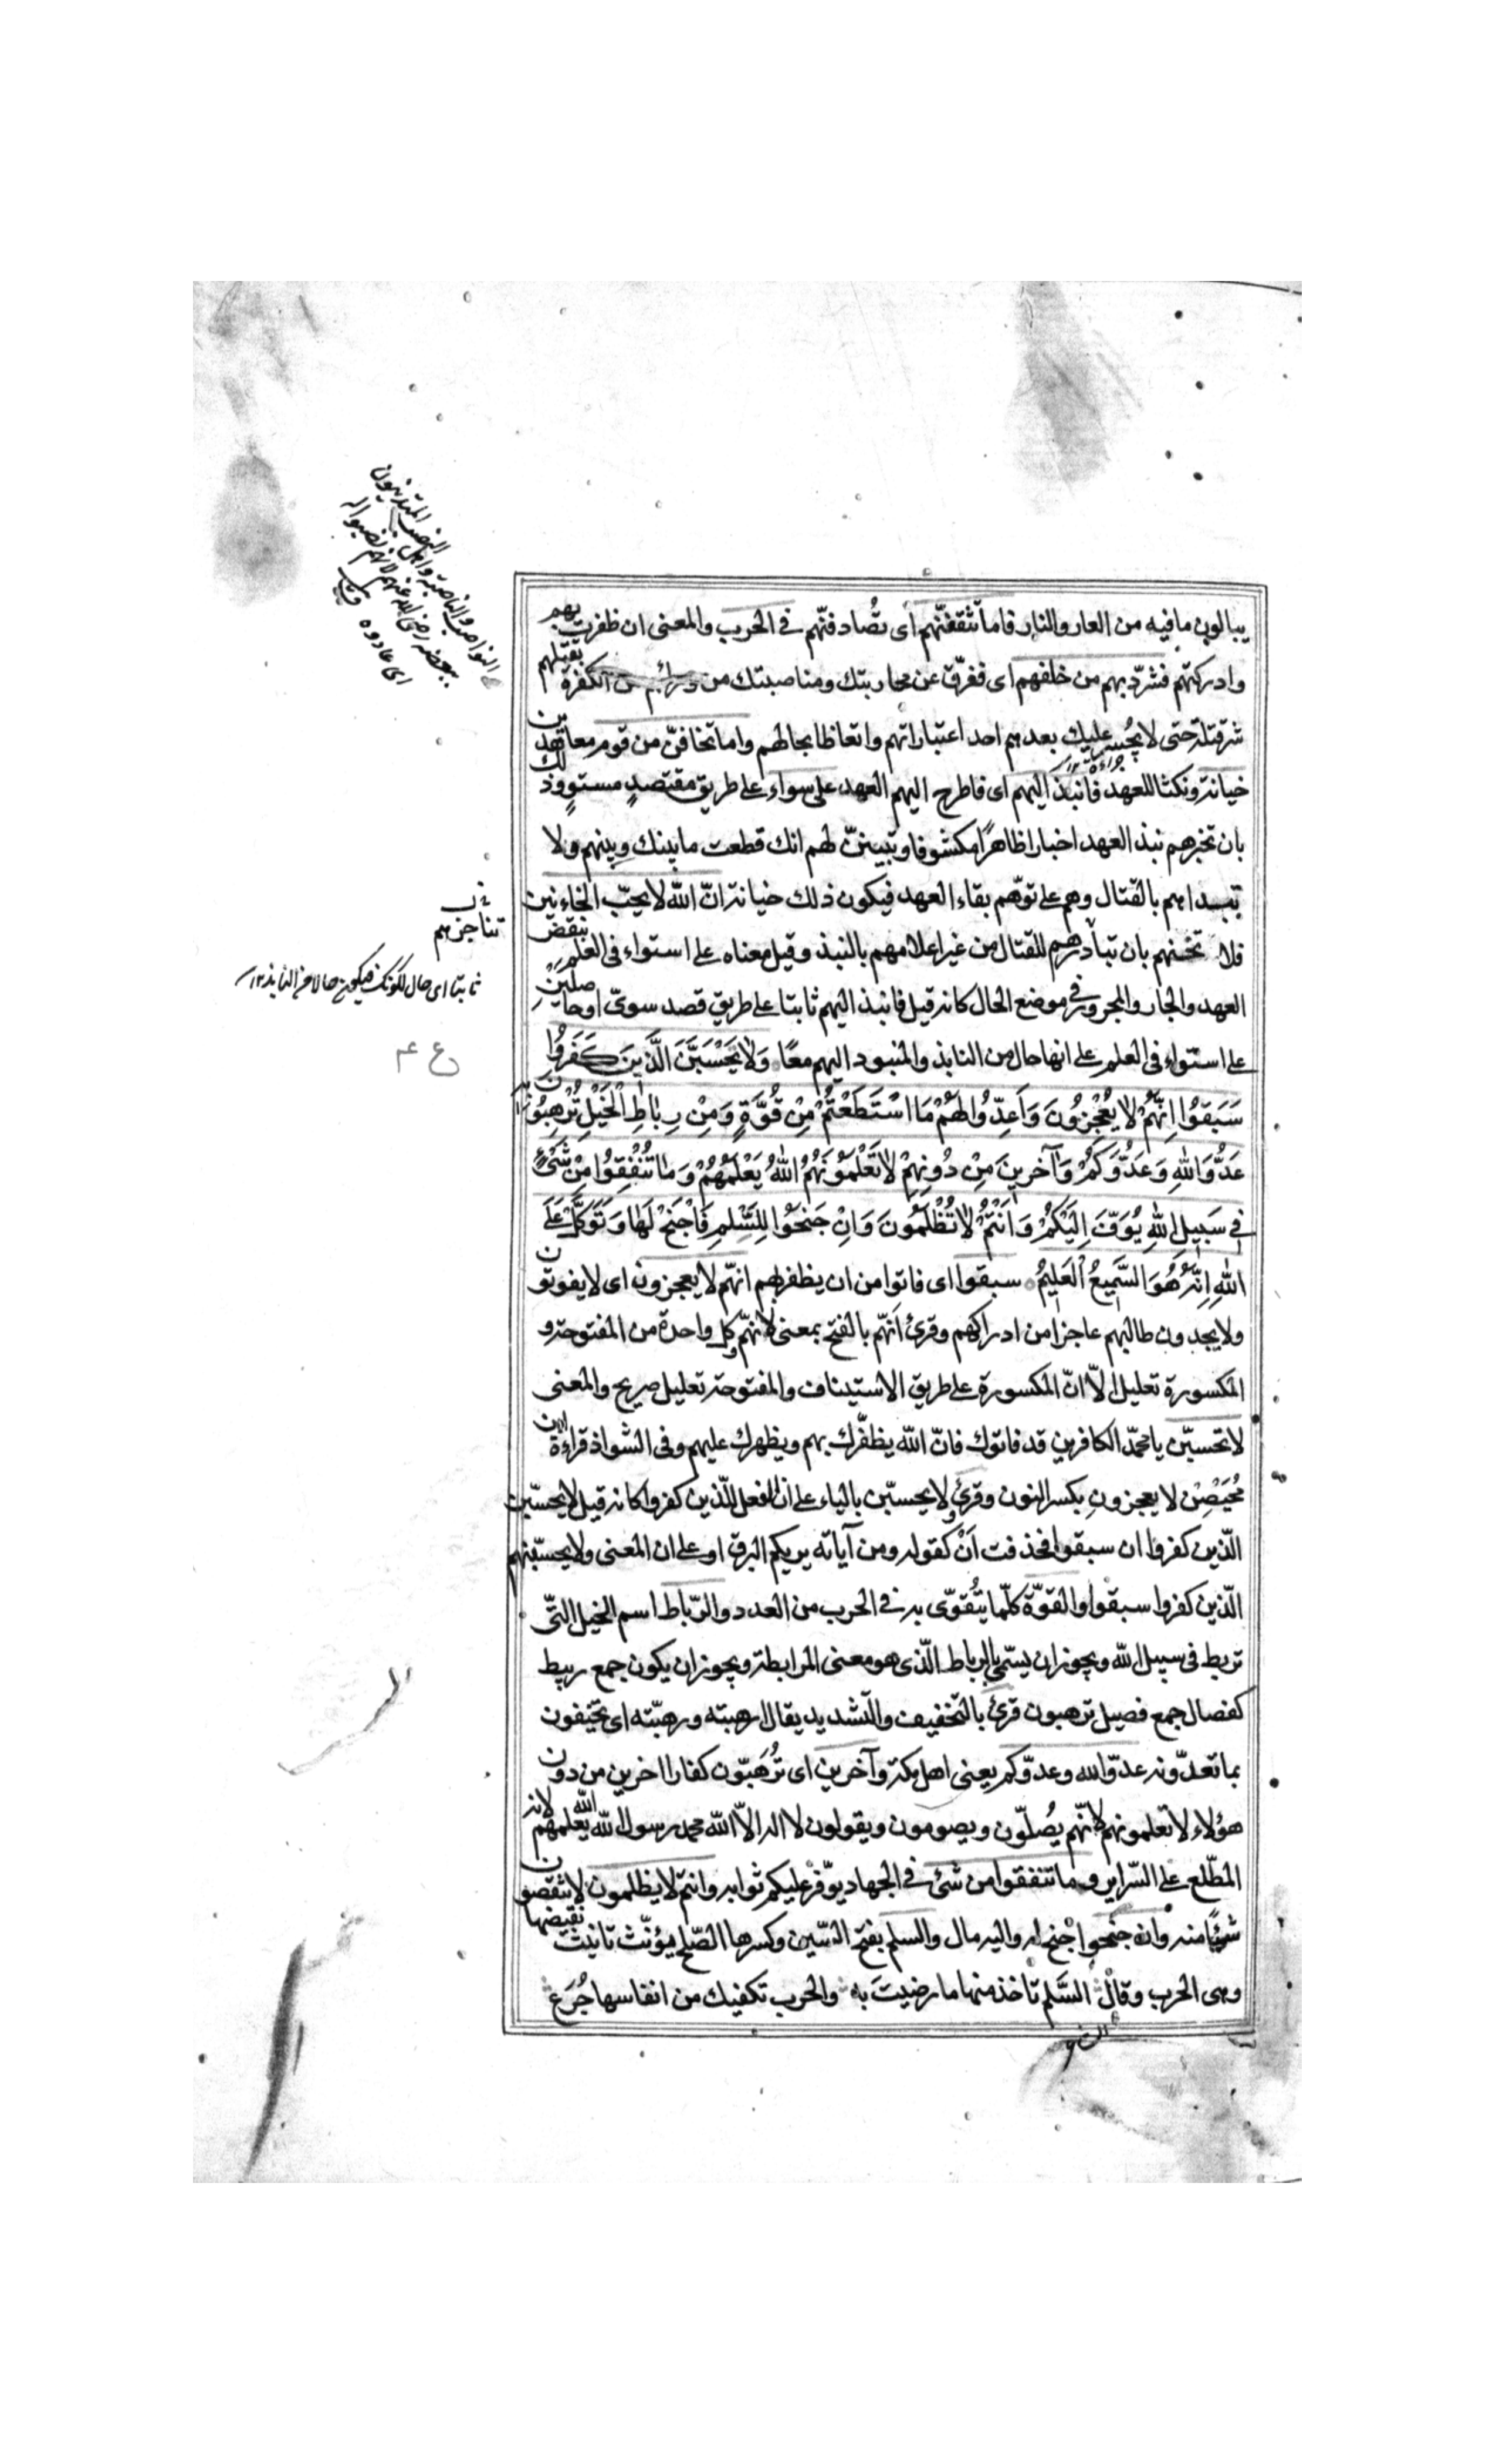 يبالون ما فيه من العار والنار فاما تثقفنّهم اى تُصادفنّهم فى الحرب والمعنى ان ظفرت بهم
وادركتهم فشرّد بهم من خلفهم اى ففرّق عن محاربتك ومناصبتك من ورائهم من الكفرة بقتلهم
شر قتلة حتى لا يجسر عليك بعدهم احد اعتبارا بهم واتعاظا بحالهم واما تخافنّ من قوم معاهدين
خيانة ونكثا للعهد فانبذ اليهم اى فاطرح اليهم العهد على سواء على طريق مقتصدٍ مستوٍ وذلك
بان تخبرهم نبذ العهد اخبارا ظاهرًا مكشوفا وتبيننّ لهم انك قطعت ما بينك وبينهم ولا
تبدابهم بالقتال وهم على توهّم بقاء العهد فيكون ذلك خيانة انّ الله لا يحبّ الخاءنين
فلا تخنهم بان تبادرهم للقتال من غير اعلامهم بالنبذ وقيل معناه على استواء فى العلم بنقض
العهد والجار والمجرور فى موضع الحال كانه قيل فانبذ اليهم ثابتا على طريق قصد سوىّ او حاصلين
على استواء فى العلم على انها حال من النابذ والمنبود اليهم معًا وَلا تَحْسَبَنَّ الَّذينَ كَفَرُوا
سَبَقُوا اِنَّهُمْ لا يُعْجِزُونَ وَاَعِدُّوا لَهُمْ مَا اسْتَطَعْتُمْ مِنْ قُوَّةٍ وَمِنْ رِباطِ الْخَيْلِ تُرْهِبُونَ
عَدُوَّ اللهِ وَعَدُوَّكُمْ وَآخَرينَ مِنْ دُونِهِمْ لا تَعْلَمُونَهُمُ اللهُ يَعْلَمُهُمْ وَما تُنْفِقُوا مِنْ شَىْءٍ
فى سَبيلِ اللهِ يُوَفَّ اِلَيْكُمْ وَاَنْتُمْ لا تُظْلَمُونَ وَاِنْ جَنَحُوا لِلسَّلْمِ فَاجْنَحْ لَها وَتَوَكَّلْ عَلَى
اللهِ اِنَّهُ هُوَ السَّميعُ الْعَليمُ سبقوا اى فاتوا من ان يظفر بهم انهّم لا يعجزون اى لا يفوتون
ولا يجدون طالبهم عاجزا من ادراكهم وقرئ اَنهّم بالفتح بمعنى لانهّم وكل واحدة من المفتوحة و
المكسورة تعليل الّا انّ المكسورة على طريق الاستيناف والمفتوحة تعليل صريح والمعنى
لا تحسبّن يا محمّد الكافرين قد فاتوك فانّ الله يظفّرك بهم ويظهرك عليهم وفى الشواذ قراءة ابن
مُحَيْصِن لا يعجزونِ بكسر النون وقرئ ولا يحسبّن بالياء على ان الفعل للّذين كفروا كانه قيل لا يحسبّن
الّذين كفروا ان سبقوا فحذفت اَنْ كقوله ومن آياته يريكم البرق او على ان المعنى ولا يحسبّنهم
الّذين كفروا سبقوا والقوّة كلّما يُتقوّى به فى الحرب من العدد والرّباط اسم الخيل التّى
تربط فى سبيل الله ويجوز ان يسمّى بالرباط الّذى هو معنى المرابطة ويجوز ان يكون جمع ربيط
كفصال جمع فصيل ترهبون قرئ بالتخفيف والتشديد يقال ارهبته ورهبّته اى تخيفون
بما تعدّونه عدوّ الله وعدوّكم يعنى اهل مكة وآخرين اى تُرَهبّون كفارا اخرين من دون
هؤلاء لا تعلمونهم لانهّم يُصلّون ويصومون ويقولون لا اله الاّ الله محمد رسول الله الله يعلمهم لانه
المطّلع على السّراير وما تنفقوا من شئ فى الجهاد يوّفر عليكم ثوابه وانتم لا يظلمون لا تنقصون
شيئًا منه وان جنحوا جنح له واليه مال والسلم بفتح السّين وكسرها الصّلح يؤنّث تانيث نقيضها
وهى الحرب وقال السَّلم تاخذ منها ما رضيتَ به والحرب تكفيك من انفاسها جُرَع
ثابتا اى حال لكونك فيكون حالا من النابذ ١٢
تناجزهم
ع ٣